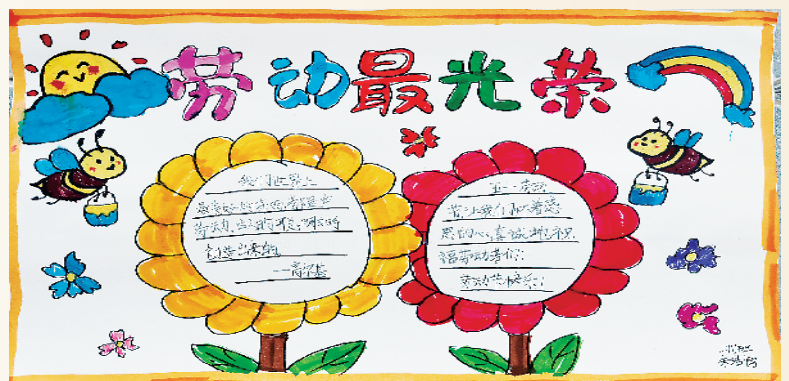 劳动最光荣
我们世界上
最美好的东西，都是由
劳动、由人的聪明的手
创造出来的
——高尔基
五一劳动
节，让我们怀着感
恩的心，真诚地祝
福劳动者们：
劳动节快乐！